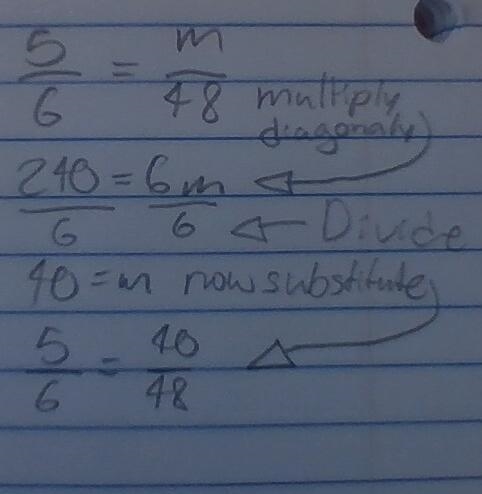 5/6 = m/48 multiply
diagonaly
240/6 = 6m/6
Divide
40 = m now substitute
5/6 = 40/48